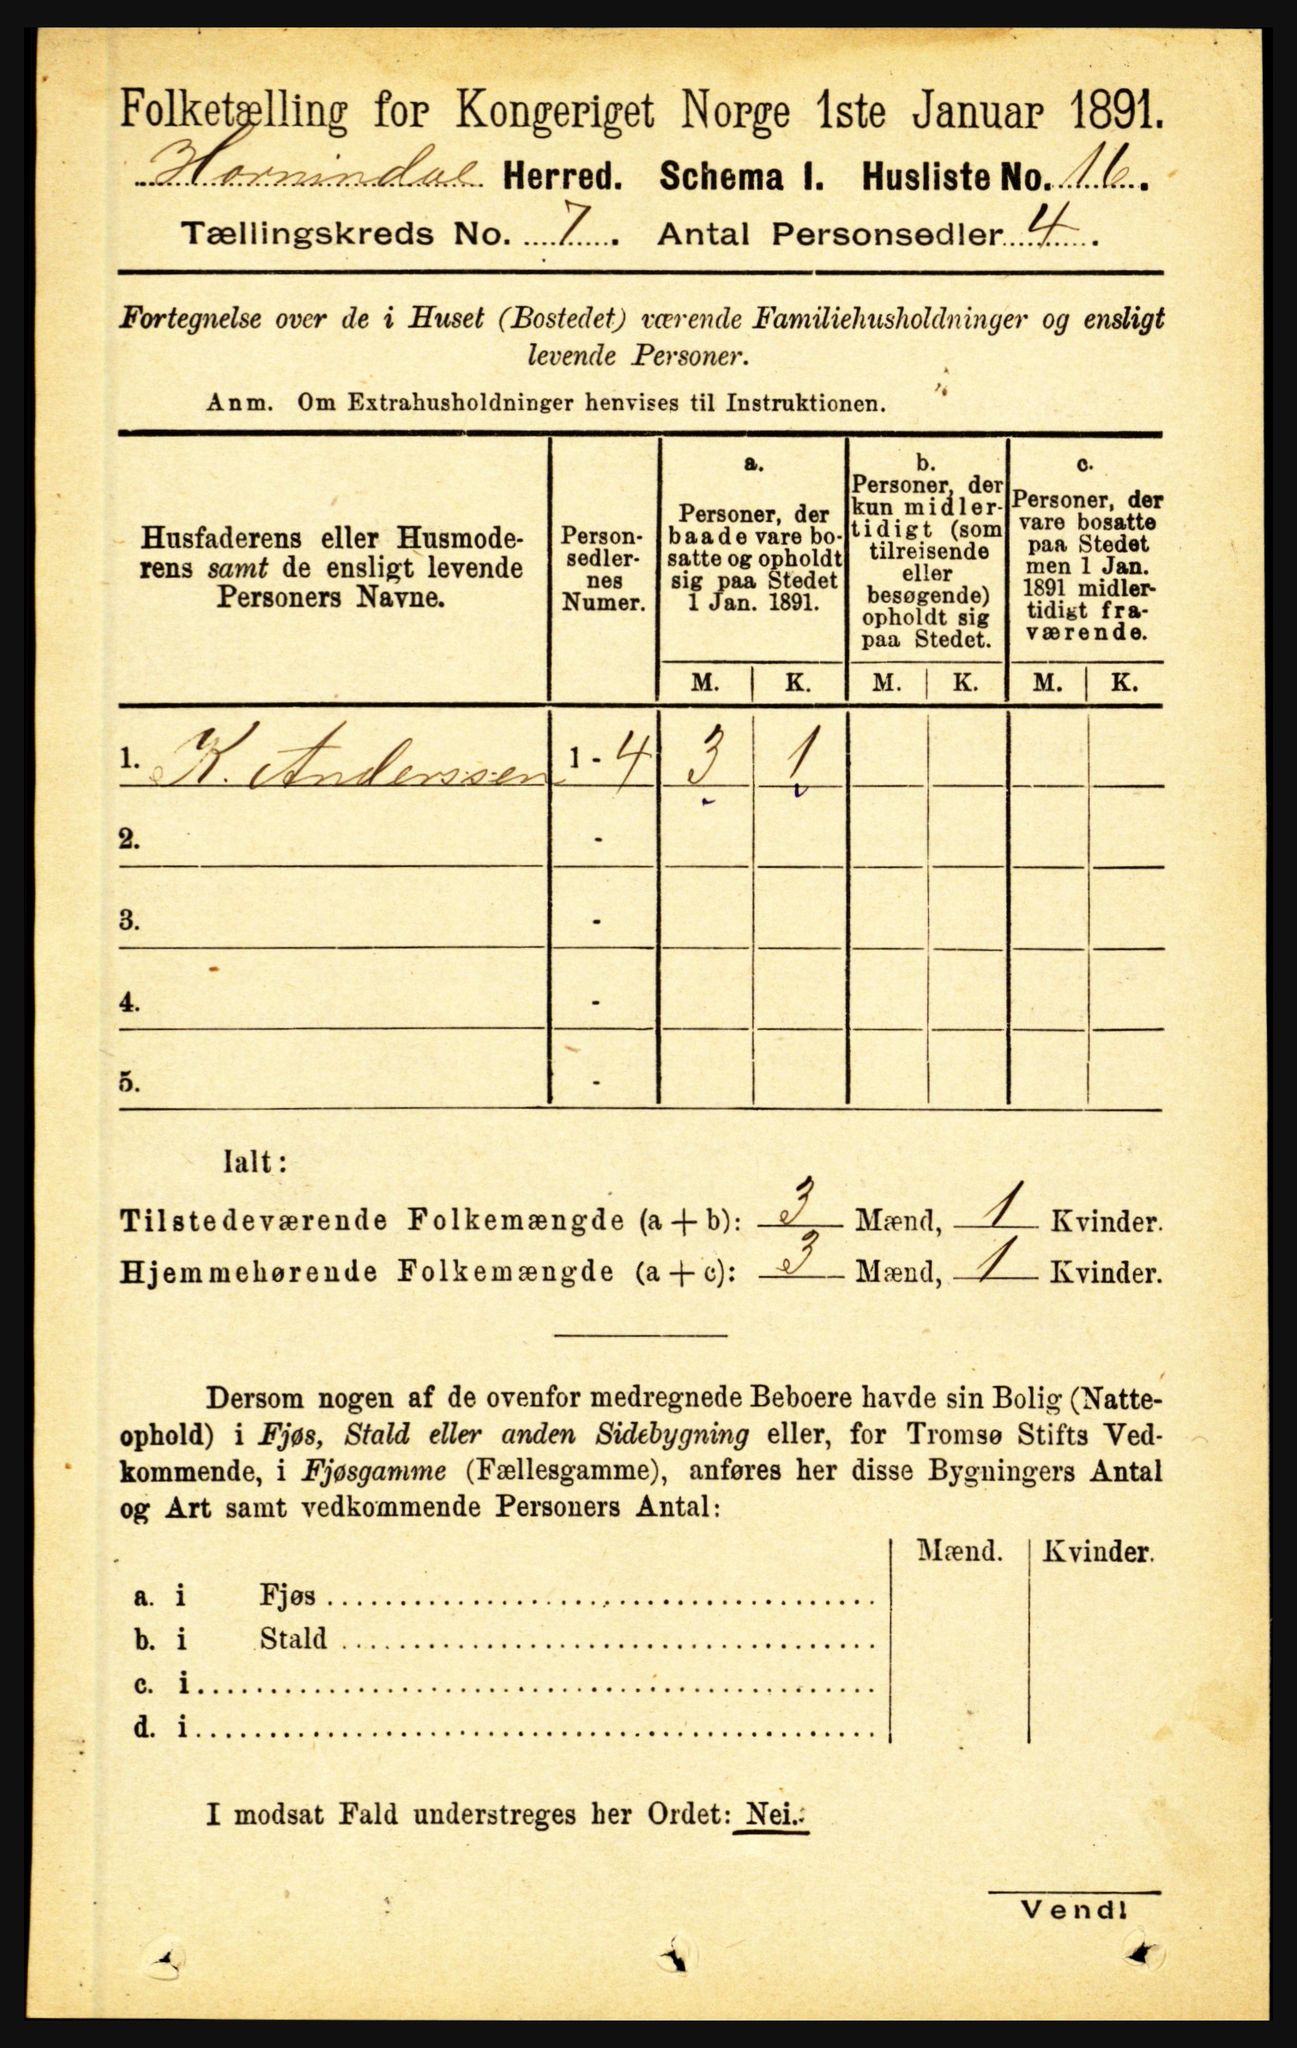 Folketælling for Kongeriget Norge 1ste Januar 1891.
Hornindal Herred. Schema I. Husliste No. 16.
Tællingskreds No. 7. Antal Personsedler 4.
Fortegnelse over de i Huset (Bostedet) værende Familiehusholdninger og ensligt
levende Personer.
Anm. Om Extrahusholdninger henvises til Instruktionen.
Husfaderens eller Husmode-
rens samt de ensligt levende
Personers Navne.
Person-
sedler-
nes
Numer.
a.
Personer, der
baade vare bo-
satte og opholdt
sig paa Stedet
1 Jan. 1891.
b.
Personer, der
kun midler-
tidigt (som
tilreisende
eller
besøgende)
opholdt sig
paa Stedet.
c.
Personer, der
vare bosatte
paa Stedet
men 1 Jan.
1891 midler-
tidigt fra-
værende.
M. K. M. K. M. K.
1. K. Anderssen 1 - 4 3 1
2. -
3. -
4. -
5. -
Ialt:
Tilstedeværende Folkemængde (a + b): 3 Mænd, 1 Kvinder.
Hjemmehørende Folkemængde (a + c): 3 Mænd, 1 Kvinder.
Dersom nogen af de ovenfor medregnede Beboere havde sin Bolig (Natte-
ophold) i Fjøs, Stald eller anden Sidebygning eller, for Tromsø Stifts Ved-
kommende, i Fjøsgamme (Fællesgamme), anføres her disse Bygningers Antal
og Art samt vedkommende Personers Antal:
Mænd. Kvinder.
a. i Fjøs
b. i Stald
c. i
d. i
I modsat Fald understreges her Ordet: Nei.
Vend!